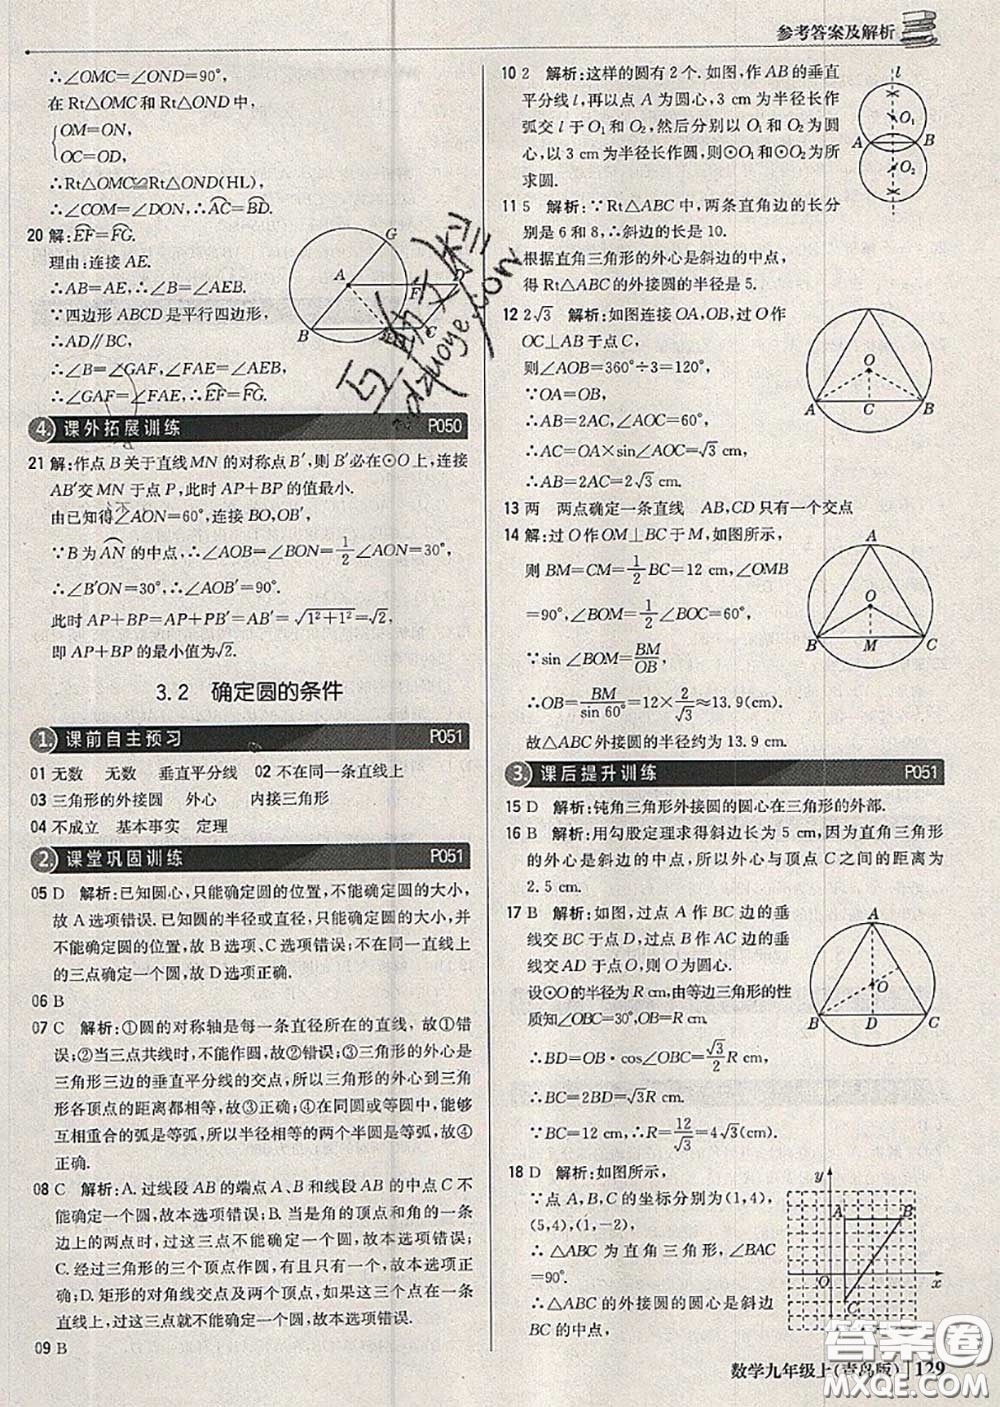 参考答案及解析
∴∠OMC=∠OND=90°,
在 Rt△OMC 和 Rt△OND 中,
OM=ON,
OC=OD,
∴Rt△OMC≌Rt△OND(HL),
∴∠COM=∠DON,∴AC=BD.
20 解:EF=FG.
理由:连接 AE.
∴AB=AE,∴∠B=∠AEB.
∵四边形 ABCD 是平行四边形,
∴AD//BC,
∴∠B=∠GAF,∠FAE=∠AEB,
∴∠GAF=∠FAE,∴EF=FG.
A
B
G
F
4. 课外拓展训练 P050
21 解:作点 B 关于直线 MN 的对称点 B′,则 B′必在⊙O 上,连接
AB′交 MN 于点 P,此时 AP+BP 的值最小.
由已知得∠AON=60°,连接 BO,OB′,
∵B 为 AN 的中点,∴∠AOB=∠BON=1/2∠AON=30°,
∴∠B′ON=30°,∴∠AOB′=90°.
此时 AP+BP=AP+PB′=AB′=√(1²+1²)=√2,
即 AP+BP 的最小值为√2.
3.2 确定圆的条件
1. 课前自主预习 P051
01 无数 无数 垂直平分线 02 不在同一条直线上
03 三角形的外接圆 外心 内接三角形
04 不成立 基本事实 定理
2. 课堂巩固训练 P051
05 D 解析:已知圆心,只能确定圆的位置,不能确定圆的大小,
故 A 选项错误.已知圆的半径或直径,只能确定圆的大小,并
不能确定圆的位置,故 B 选项、C 选项错误.不在同一直线上
的三点确定一个圆,故 D 选项正确.
06 B
07 C 解析:①圆的对称轴是每一条直径所在的直线,故①错
误;②当三点共线时,不能作圆,故②错误;③三角形的外心是
三角形三边的垂直平分线的交点,所以三角形的外心到三角
形各顶点的距离都相等,故③正确;④在同圆或等圆中,能够
互相重合的弧是等弧,所以半径相等的两个半圆是等弧,故④
正确.
08 C 解析:A.过线段 AB 的端点 A、B 和线段 AB 的中点 C 不
能确定一个圆,故本选项错误;B.当是角的顶点和角的一条
边上的两点时,过这三点不能确定一个圆,故本选项错误;
C.经过三角形的三个顶点有且只有一个圆,故本选项正
确;D.矩形的对角线交点及两个顶点,如果这三个点在一条
直线上,过这三点就不能确定一个圆,故本选项错误.
09 B
10 2 解析:这样的圆有 2 个.如图,作 AB 的垂直
平分线 l,再以点 A 为圆心,3 cm 为半径长作
弧交 l 于 O₁ 和 O₂,然后分别以 O₁ 和 O₂ 为圆
心,以 3 cm 为半径长作圆,则⊙O₁ 和⊙O₂ 为所
求圆.
l
O₁
A
B
O₂
11 5 解析:∵Rt△ABC 中,两条直角边的长分
别是 6 和 8,∴斜边的长是 10.
根据直角三角形的外心是斜边的中点,
得 Rt△ABC 的外接圆的半径是 5.
12 2√3 解析:如图连接 OA,OB,过 O 作
OC⊥AB 于点 C,
则∠AOB=360°÷3=120°.
∵OA=OB,
∴AB=2AC,∠AOC=60°,
∴AC=OA×sin∠AOC=√3 cm,
∴AB=2AC=2√3 cm.
O
A
C
B
13 两 两点确定一条直线 AB,CD 只有一个交点
14 解:过 O 作 OM⊥BC 于 M,如图所示,
则 BM=CM=1/2 BC=12 cm,∠OMB
=90°,∠BOM=1/2∠BOC=60°,
∵sin∠BOM=BM/OB,
∴OB=BM/sin 60°=12×2/√3≈13.9(cm).
故△ABC 外接圆的半径约为 13.9 cm.
A
O
B
M
C
3. 课后提升训练 P051
15 D 解析:钝角三角形外接圆的圆心在三角形的外部.
16 B 解析:用勾股定理求得斜边长为 5 cm,因为直角三角形
的外心是斜边的中点,所以外心与顶点 C 之间的距离为
2.5 cm.
17 B 解析:如图,过点 A 作 BC 边上的垂
线交 BC 于点 D,过点 B 作 AC 边上的垂
线交 AD 于点 O,则 O 为圆心.
设⊙O 的半径为 R cm,由等边三角形的性
质知∠OBC=30°,OB=R cm.
∴BD=OB·cos∠OBC=√3/2 R cm,
∴BC=2BD=√3R cm.
∵BC=12 cm,∴R=12/√3=4√3(cm).
A
O
B
D
C
18 D 解析:如图所示,
∵点 A,B,C 的坐标分别为(1,4),
(5,4),(1,-2),
∴△ABC 为直角三角形,∠BAC
=90°,
∴△ABC 的外接圆的圆心是斜边
BC 的中点,
y
A
B
O
x
C
数学九年级上(青岛版) 129
答案圈
MXQE.COM